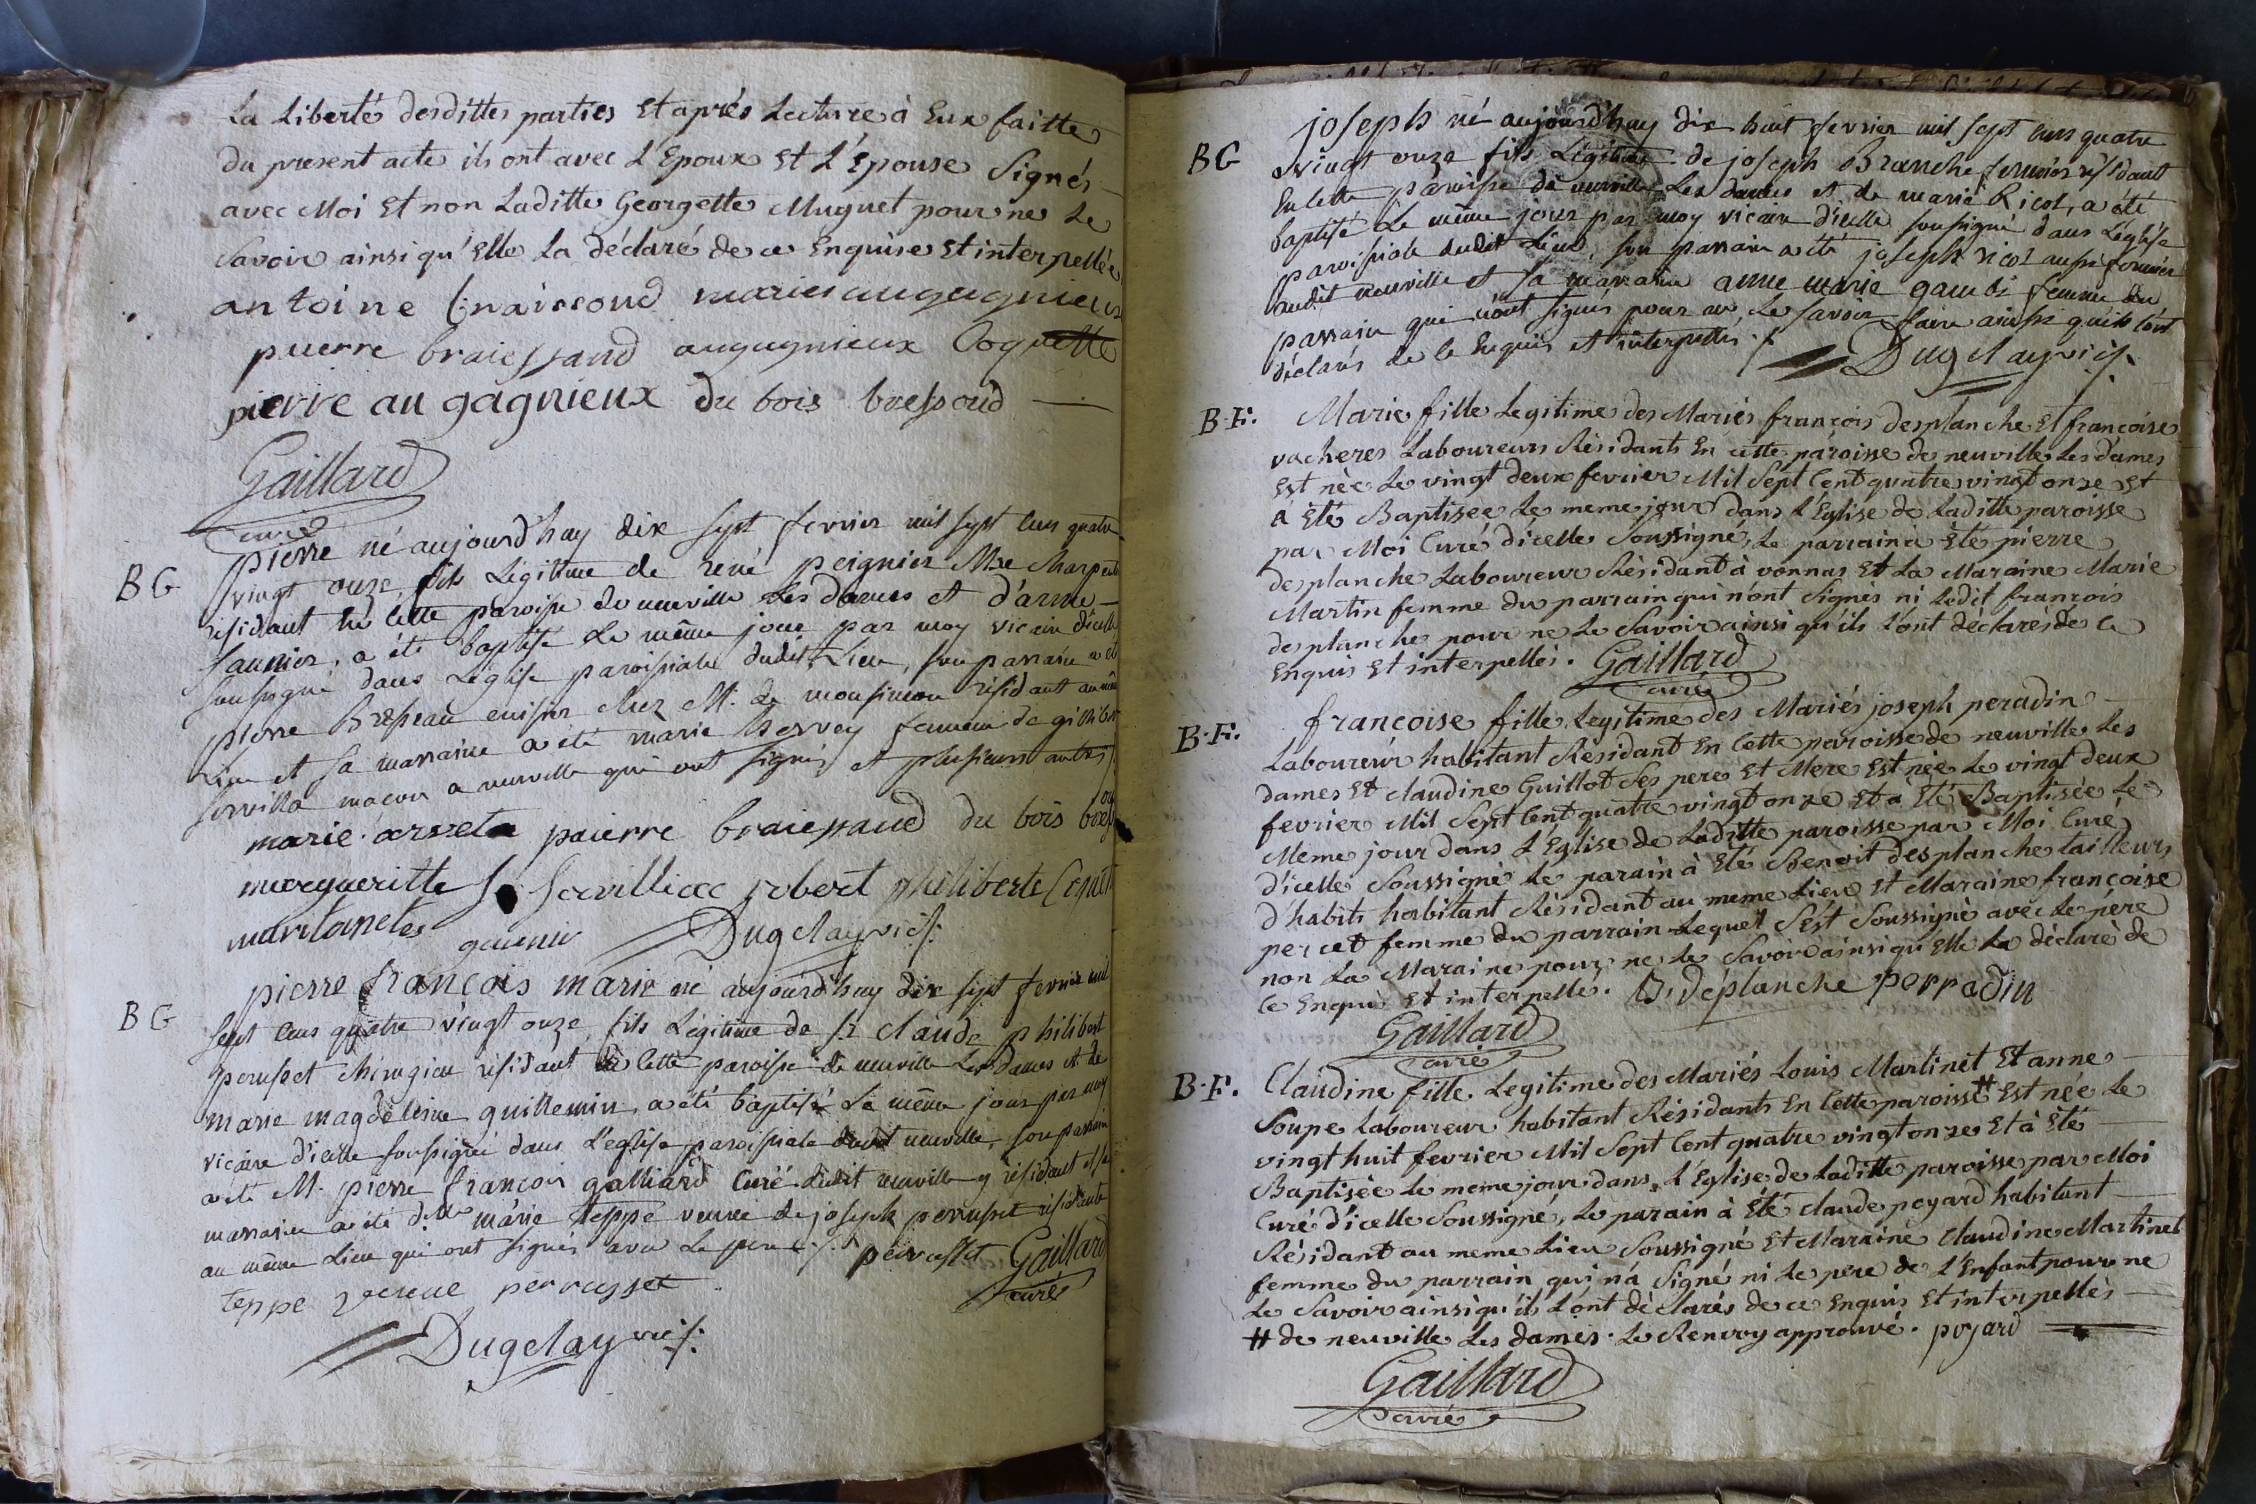 La Liberté desdittes parties Et après Lecture à Eux faitte
du present acte ils ont avec L'Epoux Et L'Epouse Signés
avec Moi Et non Laditte Georgette Muguet pour ne Le
Savoir ainsi qu'Elle La déclaré de ce Enquise Et interpellée
antoine braissoud marie augagnieux
puerre braiessaud augagnieux Coquette
pierre au gagnieux du bois bressoud
Gaillard
curé
BG
pierre né aujourd'huy dix sept fevrier mil sept cens quatre
vingt onze, fils Légittime de rené peignier Mre Charpenti
résidant en cette paroisse de neuville Les dames et d'anne
saunier, a été baptisé Le même jour par moy vicaire d'icelle
soussigné dans L'église paroissiale dudit Lieu, son parrain a été
pierre Bressau cuisinier chez M. de monsimon résidant au même
Lieu et sa marraine a été marie hervey femme de gillibert
servilla maçon a neuville qui ont signés et plusieurs autres
marie arvet puierre braiessaud du bois bress
margueritte S servilliac robert philiberte
Dugelay vic/:
BG
pierre françois marie né aujourd'huy dix sept fevrier mil
sept cens quatre vingt onze, fils Légitime de Sr claude philibert
perusset chirugien résidant en cette paroisse de neuville Les dames et de
marie magdeleine guillemin, a été baptisé Le même jour par moy
vicaire d'icelle soussigné dans L'église paroissiale dudit neuville, son parrain
a été M. pierre françois galliard Curé dudit neuville y résidant et sa
marraine a été dlle marie teppe veuve de joseph perusset résidante
au même Lieu qui ont signés avec Le pere ./. perusset Gaillard
teppe veuve perrusset curé
Dugelay vic/:
BG
joseph né aujourd'huy dix huit fevrier mil sept cens quatre
vingt onze fils Légitime de joseph Branche fermier résidant
en cette paroisse de neuville Les dames et de marie Ricol, a été
baptisé Le même jour par moy vicaire d'icelle soussigné dans L'église
paroissiale dudit Lieu, son parrain a été joseph ricol aussi fermier
audit neuville et sa maraine anne marie femme du
parrain qui n'ont signés pour ne Le savoir faire ainsi qu'ils l'ont
déclarés de ce Enquis et interpellés ./.
Dugelay vic/.
B.F.
Marie fille Legitime des Mariés françois desplanche Et françoise
vacheres Laboureurs Résidants En cette paroisse de neuville Les dames
Est née Le vingt deux fevrier Mil Sept Cent quatre vingt onze Et
à Eté Baptisée Le meme jour dans L'Eglise de Laditte paroisse
par Moi Curé d'icelle Soussigné, Le parrain à Eté pierre
desplanche Laboureur Résidant à vonnas Et La Maraine Marie
Martin femme du parrain qui n'ont Signés ni Ledit françois
desplanche pour ne Le Savoir ainsi qu'ils L'ont déclarés de ce
Enquis Et interpellés. Gaillard
curé
B.F.
françoise fille Legitime des Mariés joseph peradin
Laboureur habitant Résidant En Cette paroisse de neuville Les
dames Et claudine Guillot Ses pere Et Mere Est née Le vingt deux
fevrier Mil Sept Cent quatre vingt onze Et à Eté Baptisée Le
Meme jour dans L'Eglise de Laditte paroisse par Moi Curé
d'icelle Soussigné Le parain à Eté Benoit desplanche tailleur
d'habits habitant Résidant au meme Lieu Et Maraine françoise
percet femme du parrain Lequel S'est Soussigné avec Le pere
non La Maraine pour ne Le Savoir ainsi qu'Elle La déclaré de
ce Enquis Et interpelle. B. déplanche perradin
Gaillard
curé
B.F.
Claudine fille Legitime des Mariés Louis Martinet Et anne
Soupe Laboureur habitant Résidants En Cette paroisse # Est née Le
vingt huit fevrier Mil Sept Cent quatre vingt onze Et à Eté
Baptisée Le meme jour dans L'Eglise de Laditte paroisse par Moi
Curé d'icelle Soussigné, Le parain à Eté claude poyard habitant
Résidant au meme Lieu Soussigné Et Maraine Claudine Martinet
femme du parrain qui n'a Signé ni Le pere de L'Enfant pour ne
Le Savoir ainsi qu'ils L'ont déclarés de ce Enquis Et interpellés
# de neuville Les dames. Le Renvoy approuvé. poyard
Gaillard
curé